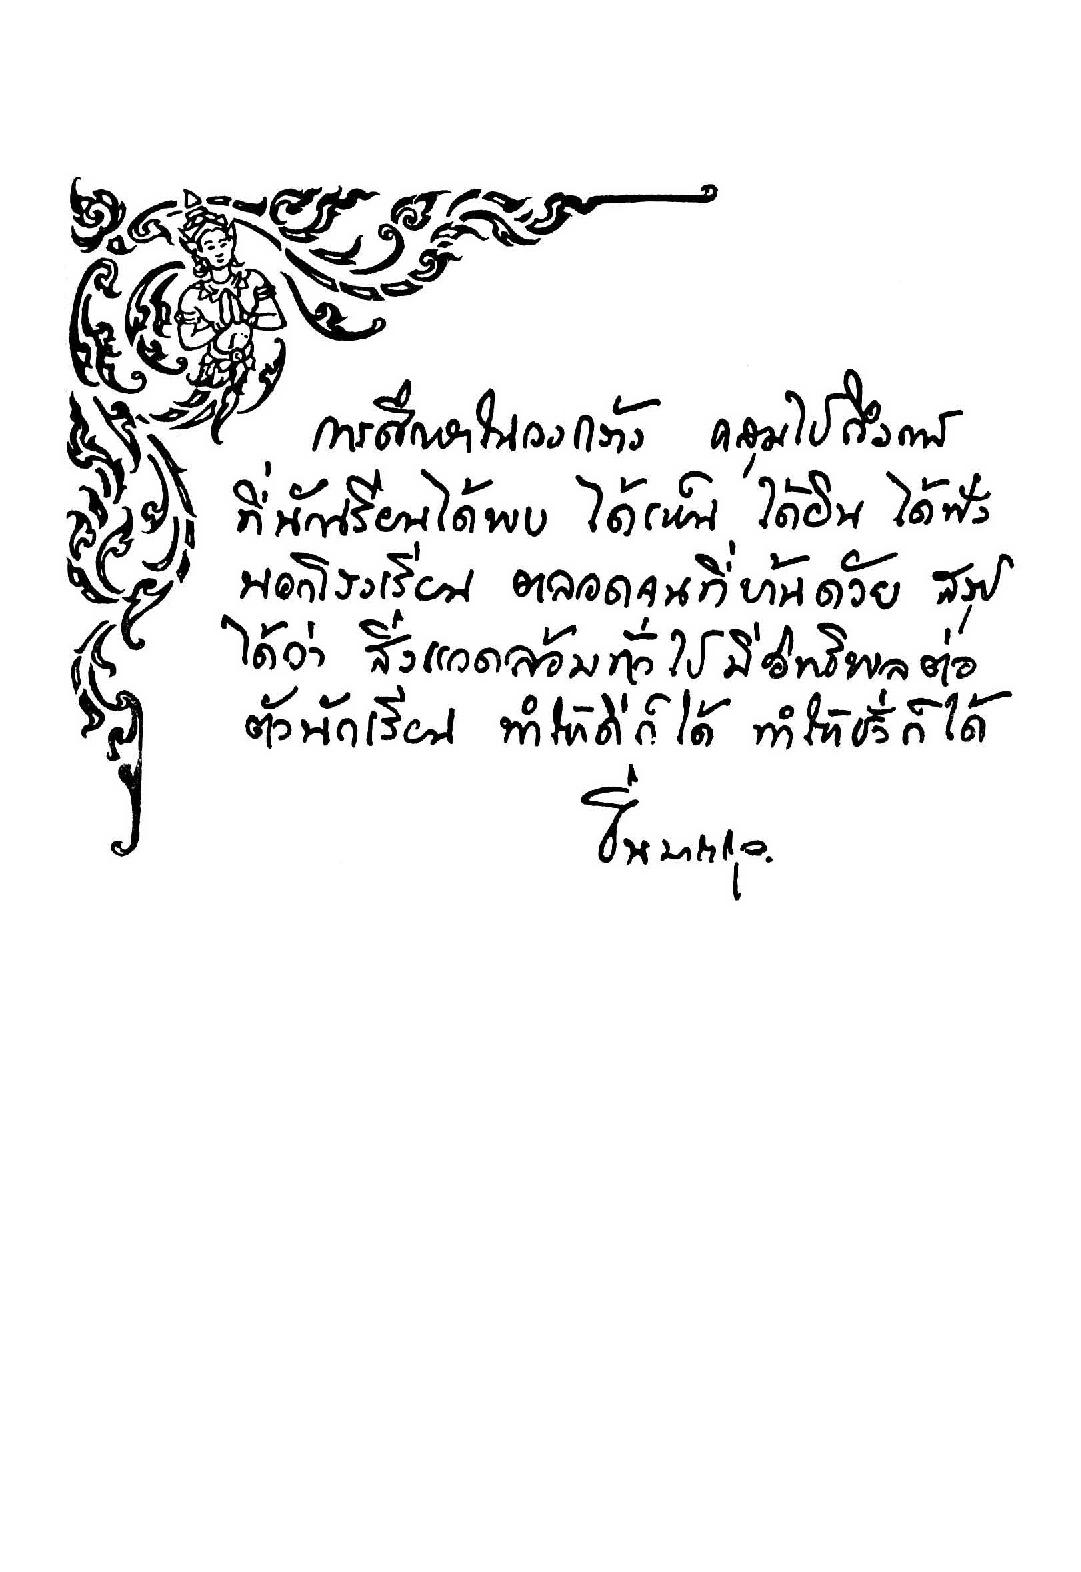 การศึกษาในวงกว้าง คลุมไปถึงการ
ที่นักเรียนได้พบ ได้เห็น ได้ยิน ได้ฟัง
นอกโรงเรียน ตลอดจนที่บ้านด้วย สรุป
ได้ว่า สิ่งแวดล้อมทั่วไปมีอิทธิพลต่อ
ตัวนักเรียน ทำให้ดีก็ได้ ทำให้ชั่วก็ได้